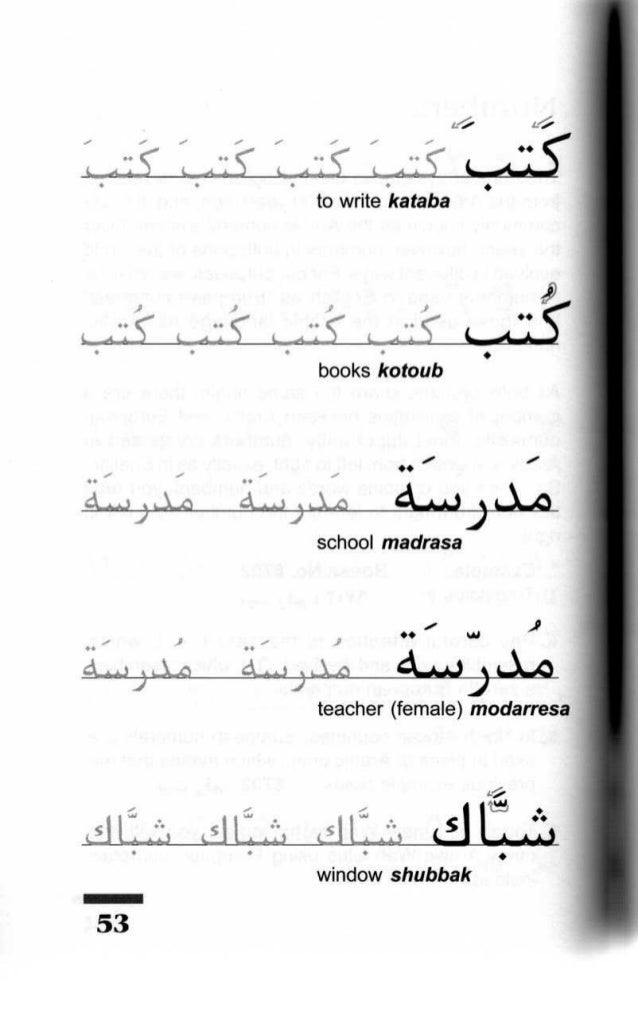 كَتَبَ كَتَبَ كَتَبَ كَتَبَ كَتَبَ
to write kataba
كُتب كُتب كُتب كُتب كُتب
books kotoub
مَدرسَة مَدرسَة مَدرسَة
school madrasa
مُدرّسَة مُدرسَة مُدرسَة
teacher (female) modarresa
شبَّاك شبَّاك شبَّاك شبَّاك
window shubbak
53